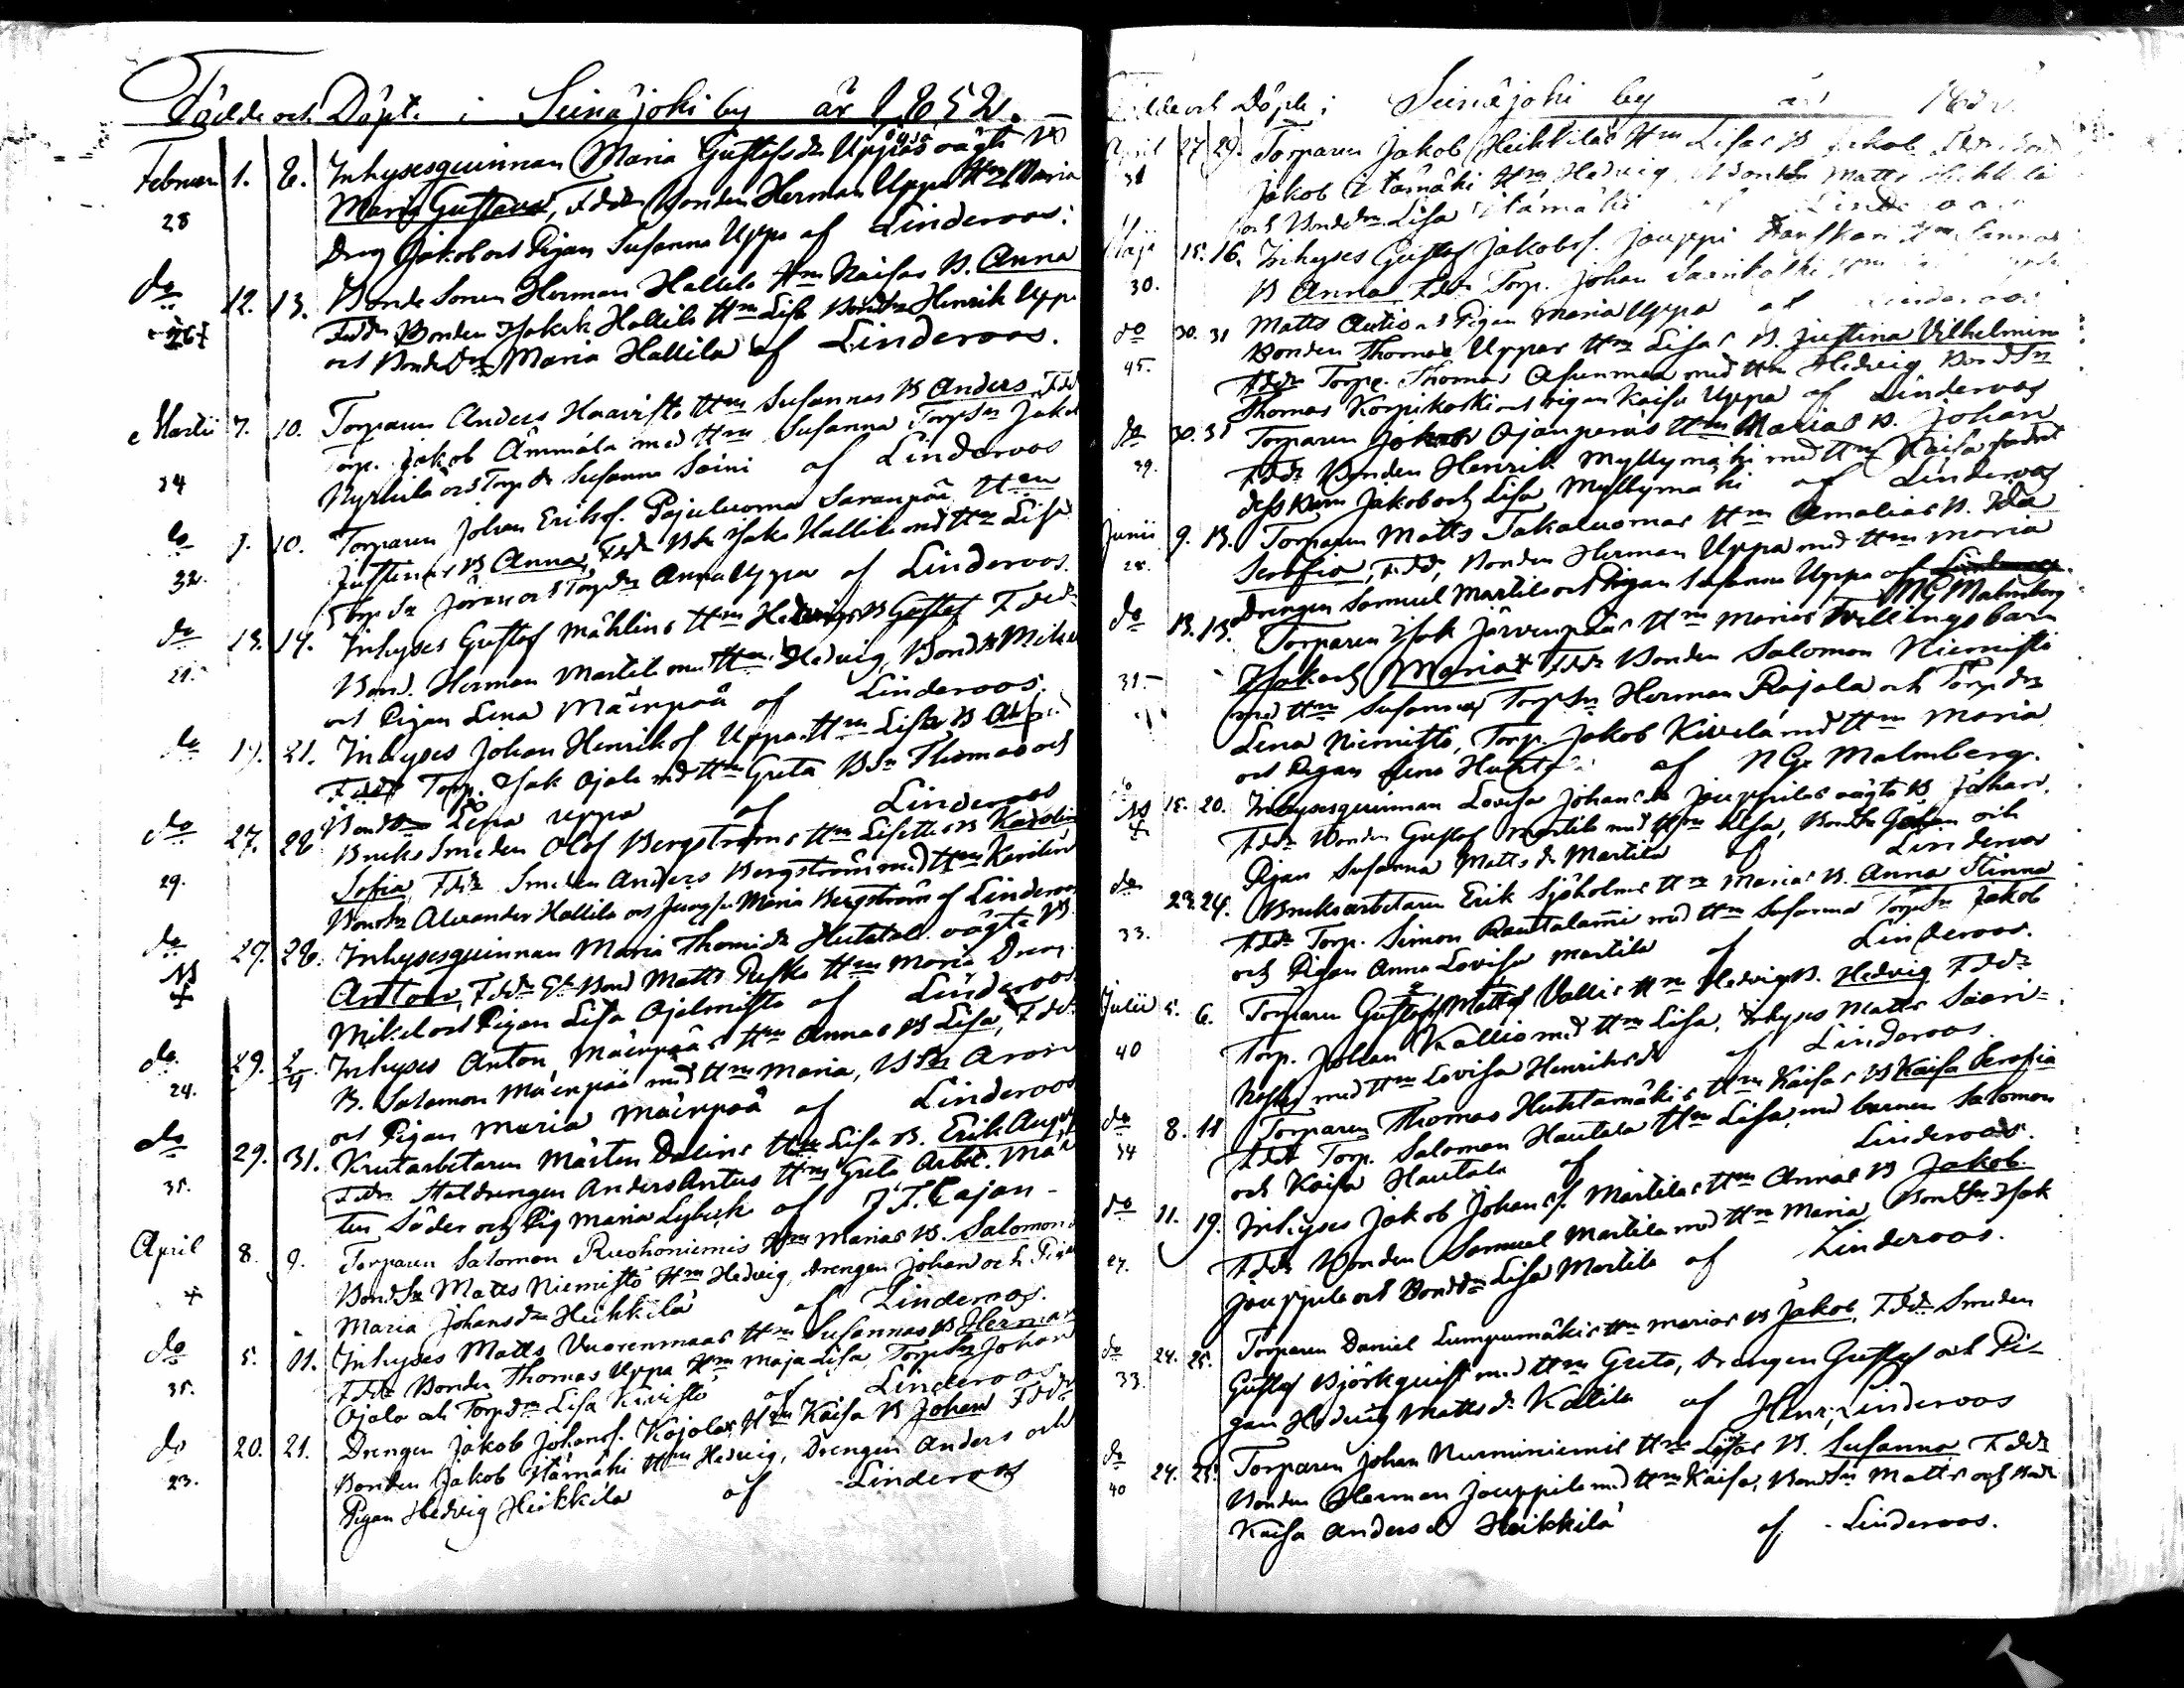 Födde och Döpte i Seinäjoki by år 1852.
Februari 1. 8. Inhysesqvinnan Maria Gustafsdr Uppas oägta B
28 Maria Gustava, Fddr Bonden Herman Uppa Hm Maria
Dreng Jakob och Pigan Susanna Uppa af Linderoos.
do 12. 13. Bonde Sonen Herman Hallila Hm Kaisas B. Anna
26 Fddr Bonden Isak Hallila Hm Lisa BondSn Henrik Uppa
och BondeDr Maria Hallila af Linderoos.
Martii 7. 10. Torparen Anders Haavisto Hm Susannas B Anders, Fdd
34 Torp. Jakob Ämmälä med Hm Susanna TorpSn Jakob
Nyrhilä och TorpDr Susanna Soini af Linderoos
do 9. 10. Torparen Johan Eriksf. Pajuluoma Saranpää Hm
32. Justinas B Anna, Fddr Isak Hallila med Hm Lisa
TorpSn Jöran och TorpDr Anna Uppa af Linderoos.
do 13. 14. Inhyses Gustaf Mählins Hm Hedvigs B Gustaf Fddr
21. Bond. Herman Martila med Hm Hedvig, BondS Mikel
och Pigan Lena Mäenpää af Linderoos.
do 19. 21. Inhyses Johan Henriksf Uppa Hm Lisa B
Fddr Torp. Isak Ojala md Hm Greta BSn Thomas och
BondDr Lisa Uppa af Linderoos
do 27. 28 Bruks Smeden Olof Bergströms Hm Lisettes B Karolin
29. Sofia, Fddr Smeden Anders Bergström med Hm Karolin
BondSn Alexander Hallila och Jungfr Maria Bergström af Linderoos
do 27. 28. Inhysesqvinnan Maria Thomædr Huhtala oägta B
Anton, Fddr Bond Matts Hm Maria Dren
Mikel och Pigan Lisa Ojalmisto af Linderoos
do 29. 2/4. Inhyses Anton Mäenpääs Hm Annas B Lisa, Fddr
24. B. Salomon Mäenpää med Hm Maria, BSn Aron
och Pigan Maria Mäenpää af Linderoos
do 29. 31. Krutarbetaren Mårten Dalins Hm Lisa B. Erik August
35. Fddr Staldrengen Anders Antus Hm Greta Arbet. Mår
ten Söder och Pig Maria Lybeck af J. F. Cajan-
April 8. 9. Torparen Salomon Ruohoniemis Hm Marias B. Salomon
BondSn Matts Niemistö Hm Hedvig, Drengen Johan och Pigan
Maria Johansdr Heikkilä af Linderoos.
do 5. 11. Inhyses Matts Vuorenmaas Hm Susannas B Herman
35. Fddr Bonden Thomas Uppa Hm Maja Lisa TorpSn Johan
Ojala och TorpDr Lisa Kivistö af Linderoos
do 20. 21. Drengen Jakob Johansf. Kojolas Hm Kaisa B Johan Fddr
23. Bonden Jakob Itämäki Hm Hedvig, Drengen Anders och
Pigan Hedvig Heikkilä af Linderoos
Födde och Döpte i Seinäjoki by år 1852.
April 27 29. Torparen Jakob Heikkiläs Hm Lisas B Jakob
31 Jakob Itämäki Hm Hedvig, BondSn Matts Heikkilä
och BondDr Lisa Itämäki af Linderoos
Maji 15. 16. Inhyses Gustaf Jakobsf. Jouppi Hm Sannas
30. B Anna Fddr Torp. Johan
Matts Autio och Pigan Maria Uppa af Linderoos
do 30. 31 Bonden Thomas Uppas Hm Lisas B. Justina Vilhelmina
45. Fddr Torp. Thomas Asunmaa med Hm Hedvig BondSn
Thomas Korpikoski och Pigan Kaisa Uppa af Linderoos
do 30. 31 Torparen Jakob Ojanperäs Hm Marias B. Johan
39. Fddr Bonden Henrik Myllymäki med Hm Kaisa samt
dess barn Jakob och Lisa Myllymäki af Linderoos
Junii 9. 13. Torparen Matts Takaluomas Hm Amalias B. Ida
28. Serafia, Fddr, Bonden Herman Uppa med Hm Maria
Drengen Samuel Martila och Pigan Susanna Uppa af Linderoos
N G Malmberg
do 13. 13. Torparen Isak Järvenpääs Hm Marias Tvillingsbarn
31. Isak och Maria Fddr Bonden Salomon Niemistö
med Hm Susanna TorpSn Herman Rajala och TorpDr
Lena Niemistö, Torp. Jakob Kivelä md Hm Maria
och Pigan Lena Huhtala af N G Malmberg.
do 15. 20. Inhysesqvinnan Lovisa Johansdr Jouppilas oägta B Johan,
Fddr Bonden Gustaf Martila med Hm Lisa, BondSn Johan och
Pigan Susanna Mattsdr Martila af Linderoos
do 23. 24. Bruksarbetaren Erik Sjöholms Hm Marias B. Anna Stinna
33. Fddr Torp. Simon Rautalammi med Hm Susanna TorpSn Jakob
och Pigan Anna Lovisa Martila af Linderoos.
Julii 5. 6. Torparen Gustaf Mattsf Vallis Hm Hedvigs B. Hedvig Fddr
40 Torp. Johan Kallio med Hm Lisa, Inhyses Matts Saari-
koski med Hm Lovisa Henriksdr af Linderoos.
do 8. 11 Torparen Thomas Huhtamäkis Hm Kaisas B Kaisa Serafia
34 Fddr Torp. Salomon Hautala Hm Lisa, md barnen Salomon
och Kaisa Hautala af Linderoos.
do 11. 19. Inhyses Jakob Johansf. Martilas Hm Annas B Jakob
27. Fddr Bonden Samuel Martila med Hm Maria, BondSn Isak
Jouppila och BondDr Lisa Martila af Linderoos.
do 24. 25. Torparen Daniel Lumpumäkis Hm Marias B Jakob, Fddr Smeden
33. Gustaf Björkquist med Hm Greta, Drengen Gustaf och Pi-
gan Hedvig Mattsdr Kallila af Henr. Linderoos
do 24. 25. Torparen Johan Nurminiemis Hm Lisas B. Susanna Fddr
40 Bonden Herman Jouppila md Hm Kaisa, BondSn Matts och BDr
Kaisa Andersdr Heikkilä af Linderoos.